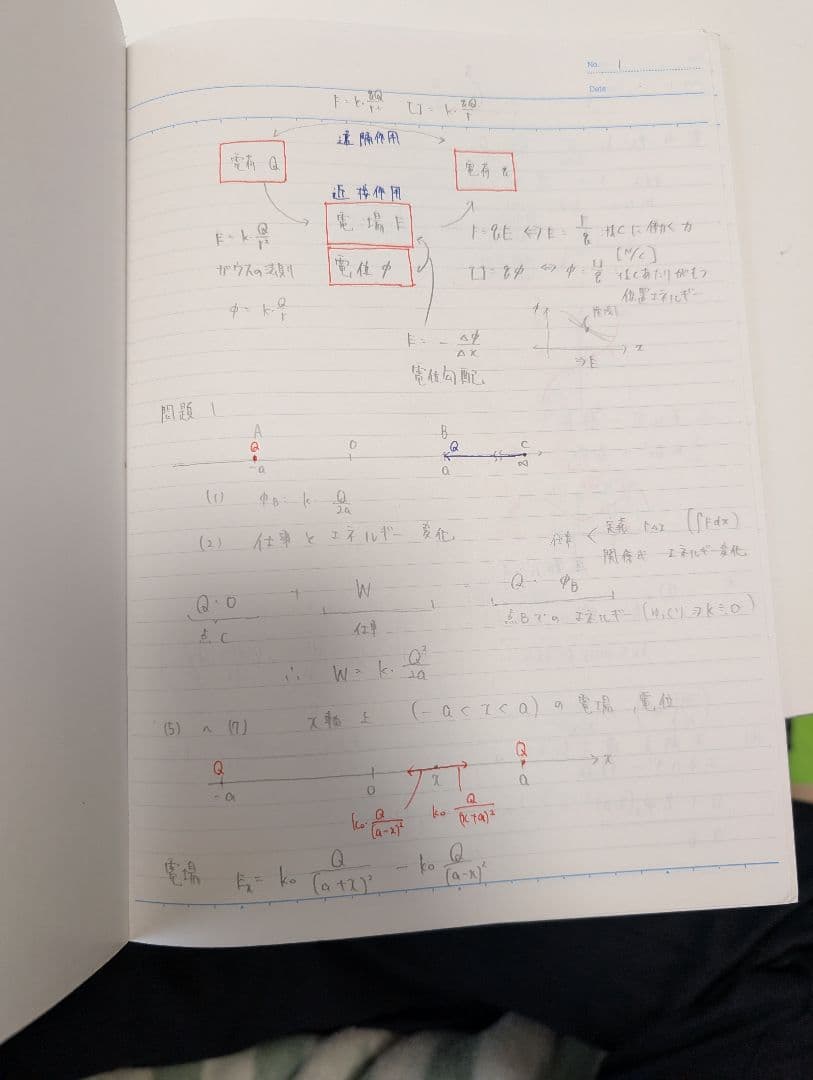 No. 1
Date
F = k・qQ/r² U = k・qQ/r
遠隔作用
電荷 Q 電荷 q
近接作用
電場 E
E = k・Q/r² F = qE ⇔ E = F/q 1Cに働く力
[N/C]
ガウスの法則 電位 φ U = qφ ⇔ φ = U/q 1Cあたりがもつ
位置エネルギー
φ = k・Q/r
E = - Δφ/Δx
⇒E x
電位勾配
問題 1
A B
Q 0 Q C
-a a ∞
(1) φB = k Q/2a
(2) 仕事とエネルギー変化 仕事 < 定義 FΔx (∫Fdx)
関係式 エネルギー変化
Q・0 + W = Q・φB
点C 仕事 点Bでのエネルギー (ゆっくり⇒K≒0)
∴ W = k・Q²/2a
(5) ~ (7) x軸上 (-a < x < a) の電場, 電位
Q Q
-a 0 x a x
k₀・Q/(a-x)² k₀・Q/(x+a)²
電場 Ex = k₀ Q/(a+x)² - k₀ Q/(a-x)²